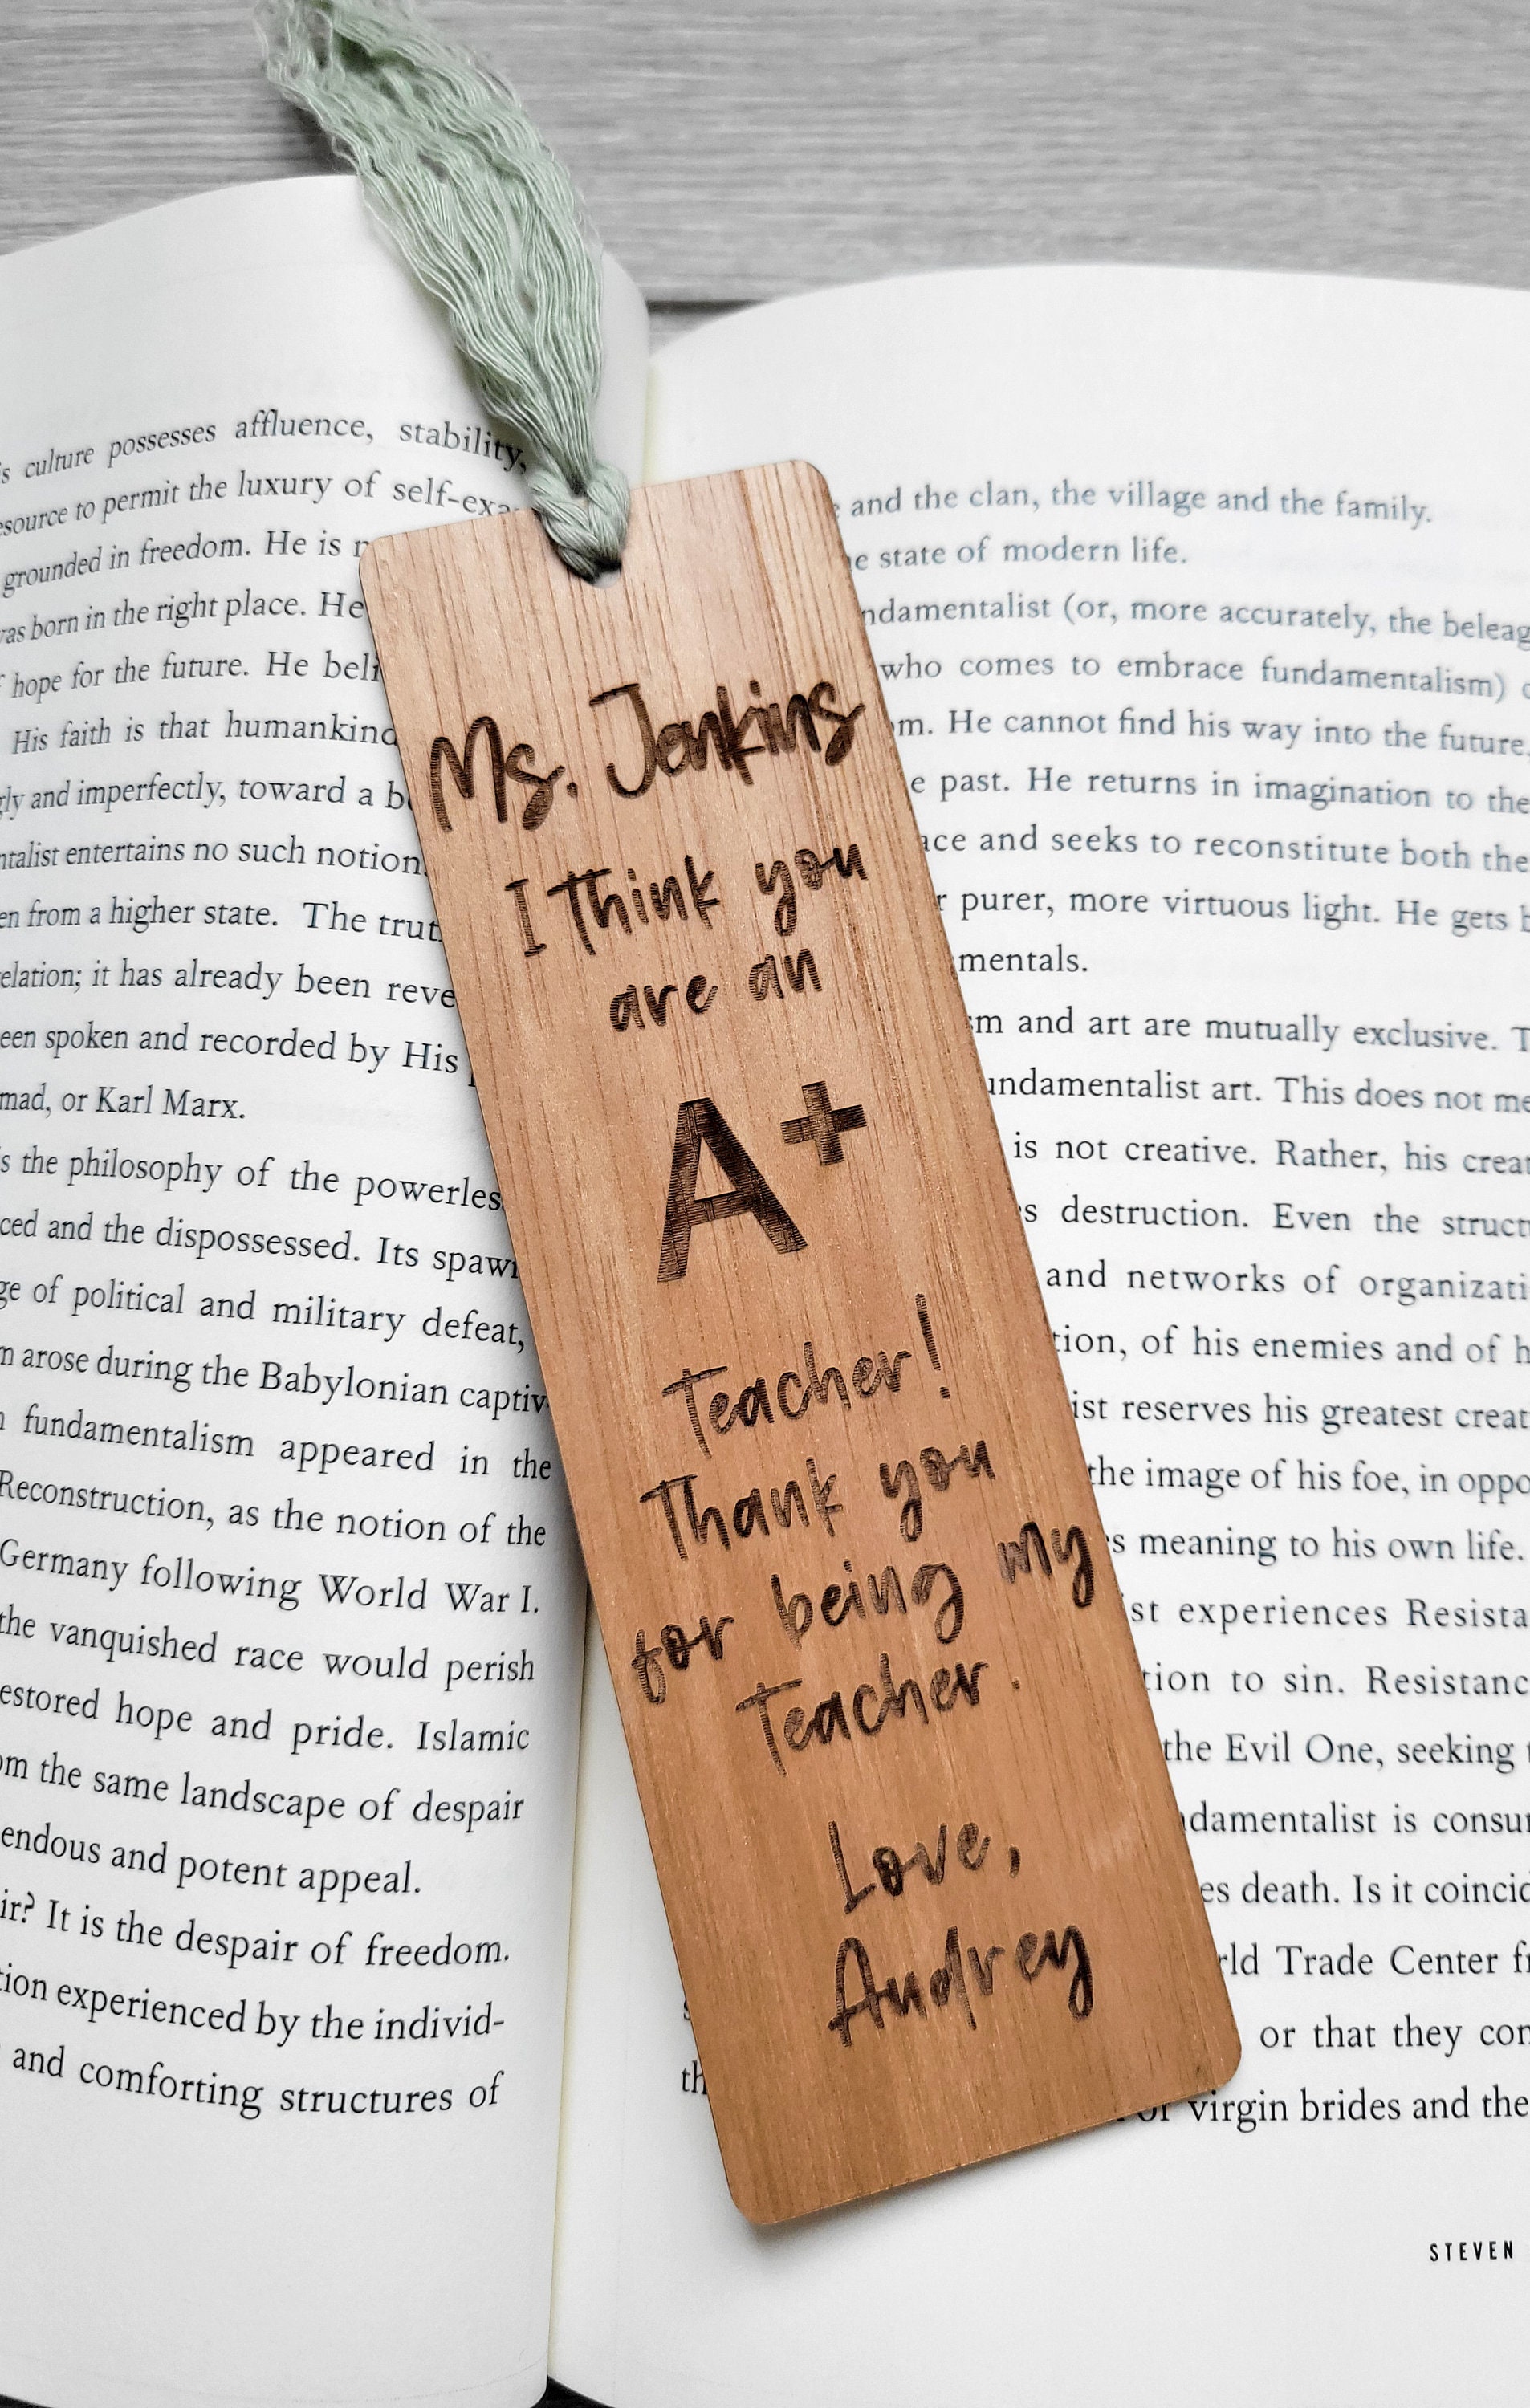 culture possesses affluence, stability,
to permit the luxury of
grounded in freedom. He is
was born in the right place. He
hope for the future. He
His faith is that humankind
and imperfectly, toward a
entertains no such notion.
from a higher state. The
it has already been
been spoken and recorded by His
or Karl Marx.
the philosophy of the
and the dispossessed. Its
of political and military defeat,
arose during the Babylonian
fundamentalism appeared in the
Reconstruction, as the notion of the
Germany following World War I.
the vanquished race would perish
hope and pride. Islamic
the same landscape of despair
and potent appeal.
It is the despair of freedom.
experienced by the individ-
and comforting structures of
Ms. Jenkins
I think you
are an
A+
Teacher!
Thank you
for being my
Teacher.
Love,
Audrey
and the clan, the village and the family.
state of modern life.
(or, more accurately, the
who comes to embrace fundamentalism)
He cannot find his way into the future,
past. He returns in imagination to the
and seeks to reconstitute both the
purer, more virtuous light. He gets
and art are mutually exclusive.
art. This does not
is not creative. Rather, his
destruction. Even the
and networks of
of his enemies and of
reserves his greatest
the image of his foe, in
meaning to his own life.
experiences
to sin.
the Evil One, seeking
is
death. Is it
Trade Center
or that they
virgin brides and the
STEVEN